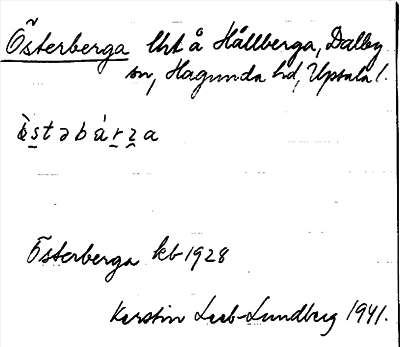 Österberga lht å Hållberga, Dalby
sn, Hagunda hd, Uppsala l.
ö̀stəbárʒa
Österberga kb 1928
Kerstin Leeb-Lundberg 1941.